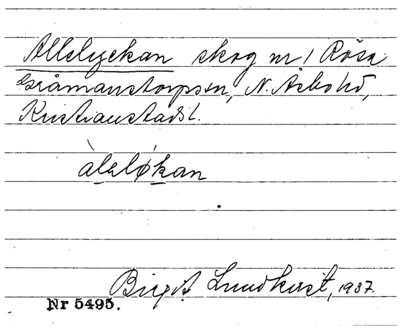 Allelyckan skog nr 1 Rössa
Gråmanstorpssn, N. Åsbohd,
Kristianstads l.
àleløkan
Birgit Lundkvist, 1937.
Nr 5495.